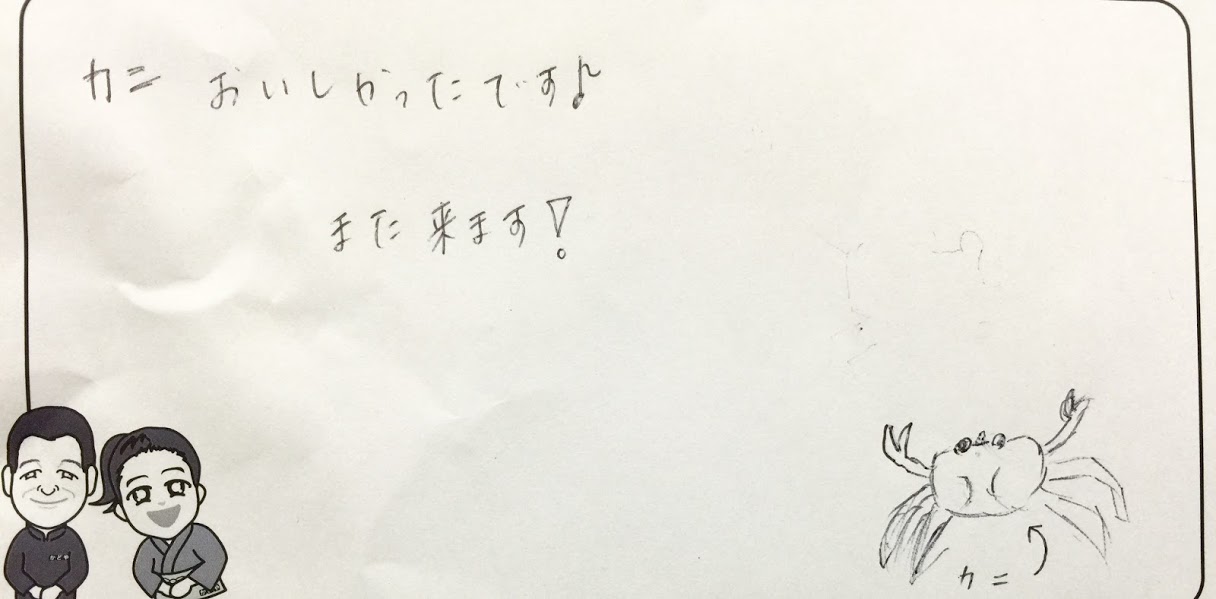 カニ おいしかったです♪
また来ます!
カニ